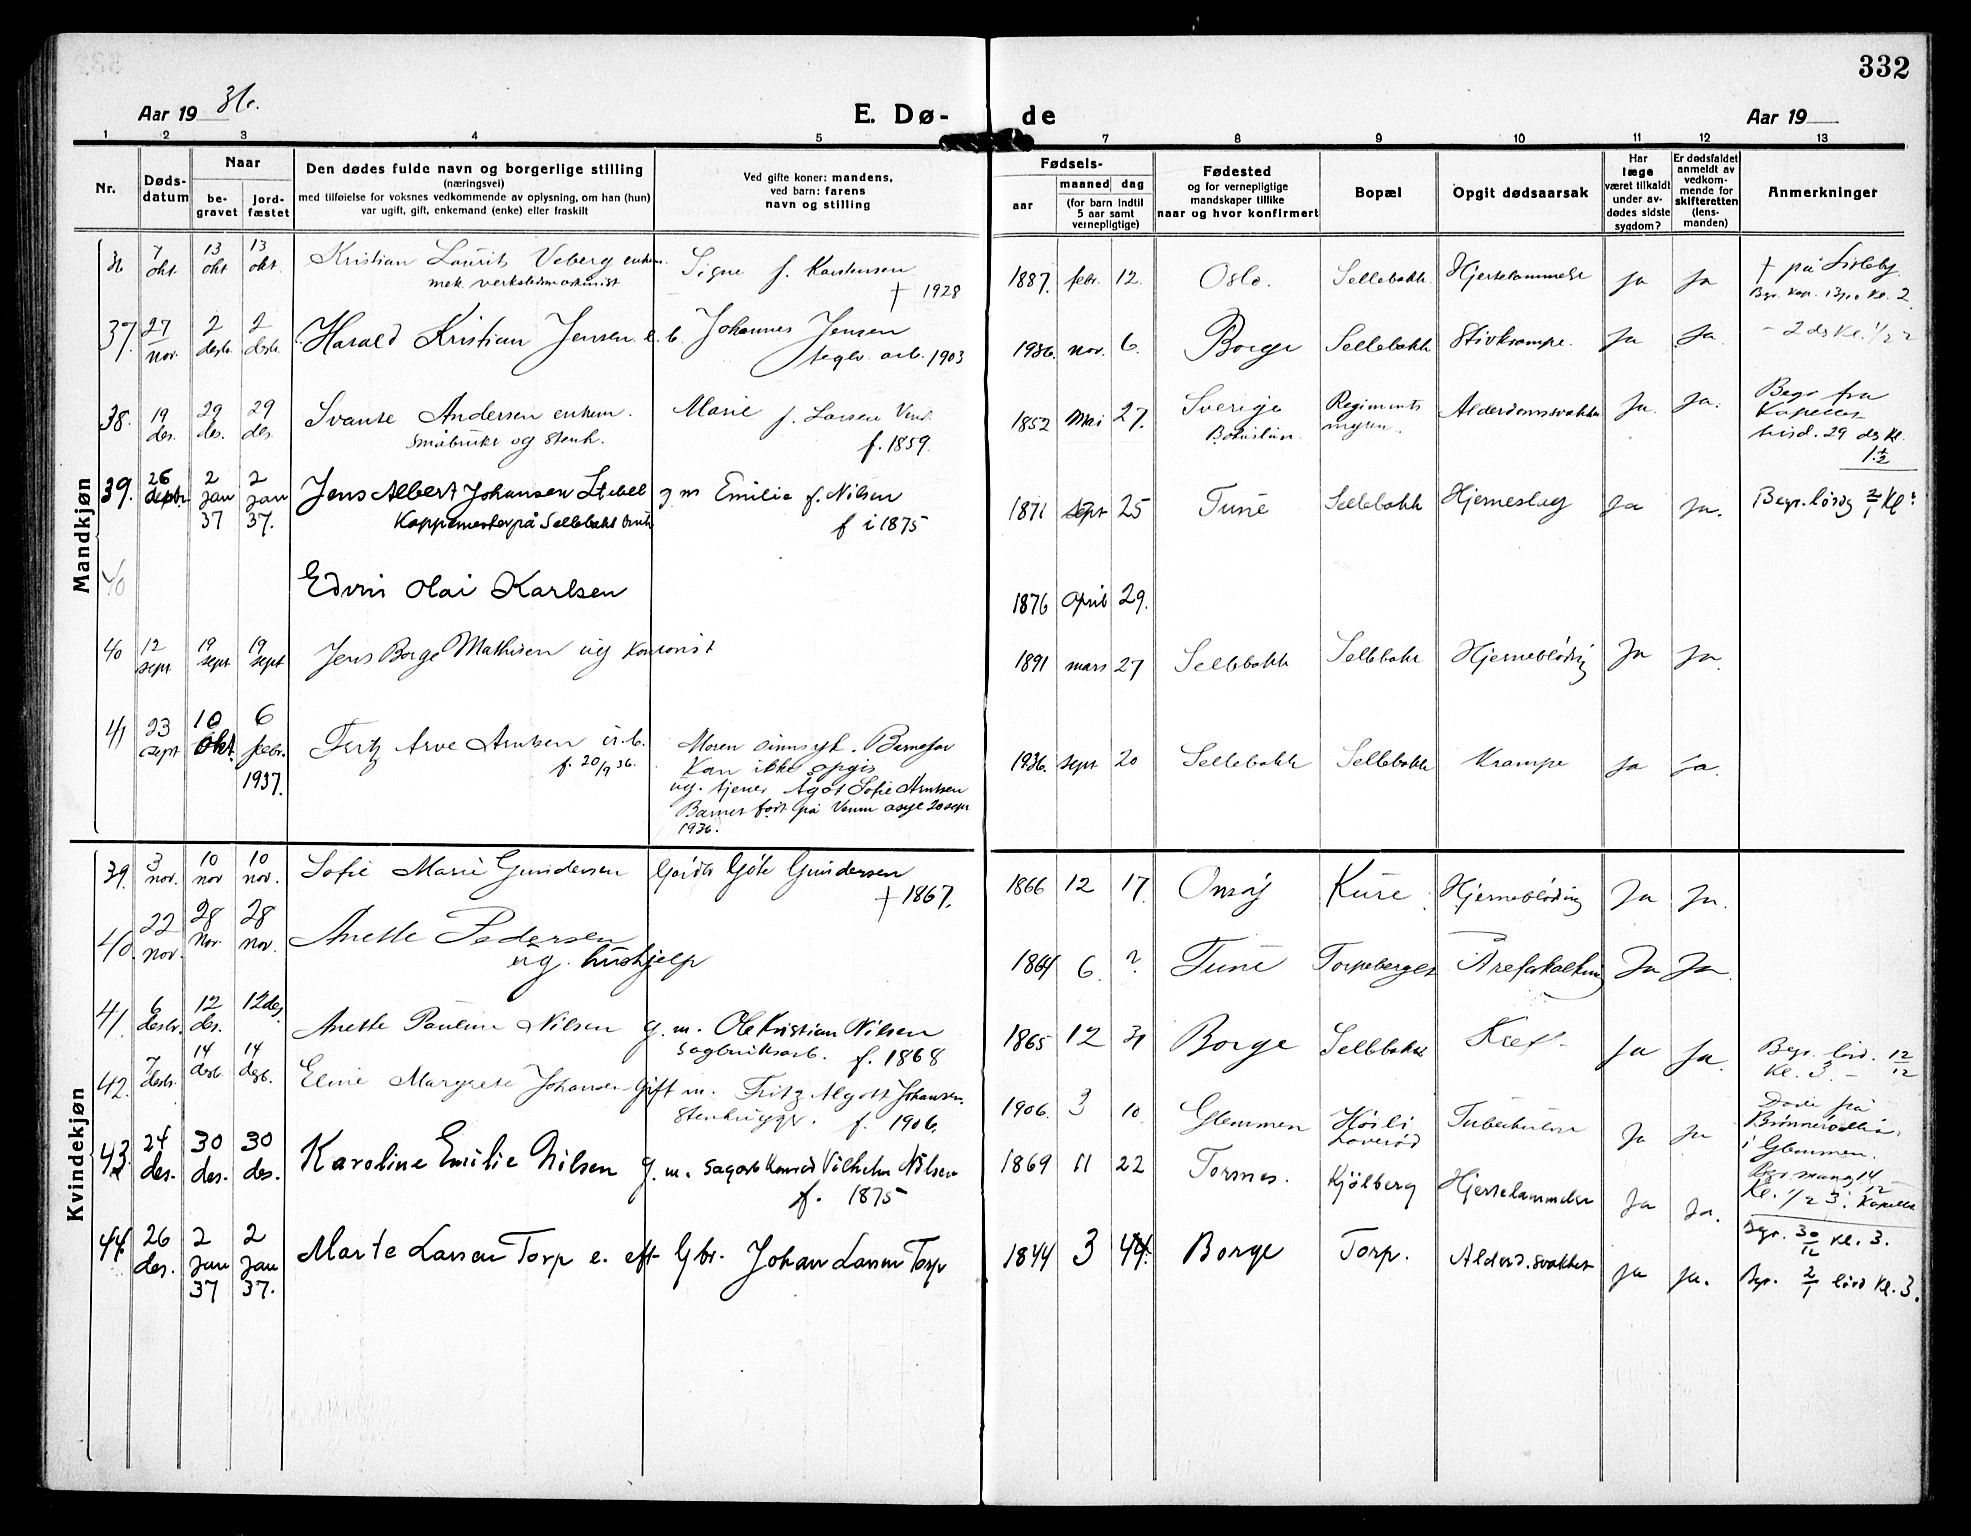 332
Aar 19 36.
E. Dø-
de
Aar 19
1 2 3 4 5 7 8 9 10 11 12 13
Nr.
Døds-
datum
Naar
be-
gravet
jord-
fæstet
Den dødes fulde navn og borgerlige stilling
(næringsvei)
med tilføielse for voksnes vedkommende av oplysning, om han (hun)
var ugift, gift, enkemand (enke) eller fraskilt
Ved gifte koner: mandens,
ved barn: farens
navn og stilling
Fødsels-
aar
maaned dag
(for barn indtil
5 aar samt
vernepligtige)
Fødested
og for vernepligtige
mandskaper tillike
naar og hvor konfirmert
Bopæl
Opgit dødsaarsak
Har
læge
været tilkaldt
under av-
dødes sidste
sygdom?
Er dødsfaldet
anmeldt av
vedkom-
mende for
skifteretten
(lens-
manden)
Anmerkninger
Mandkjøn
36 7 okt 13 okt 13 okt. Kristian Laurits Veberg enkem. Signe f. Karstensen 1887. febr. 12. Oslo. Sellebakk Hjertelammelse Ja Ja † på Lisleby.
mek. verkstedmaskinist † 1928
37. 27 nov. 2 desb. 2 desb. Harald Kristian Jensen e. b. Johannes Jensen 1936. nov. 6. Borge Sellebakk Stivkrampe. Ja Ja.
teglv. arb. 1903
38. 19 des. 29 des. 29 des. Svante Andersen enkem. Marie f. Larsen 1852 Mai 27. Sverige Regiments Alderdomssvakhet Ja. Ja. Begr. fra
småbruker og stenh. f. 1859. Bohuslän. myren. Kapellet
tirsd. 29 ds kl.
1 1/2
39. 26 desbr. 2 Jan 37 2 Jan 37. Jens Albert Johansen Stebel g m Emilie f. Nilsen 1871 sept 25 Tune Sellebakk Hjerneslag Ja Ja. Begr. lørdg 2/1 Kl
Kappemester på Sellebakk bruk f i 1875
40 Edvin Olai Karlsen 1876 April 29.
40 12 sept 19 sept 19 sept Jens Borge Mathisen ug Kontorist 1891 mars 27 Sellebakk Sellebakk Hjerneblødng Ja Ja.
41 23 sept 10 okt. 6 febr. 1937. Fritz Arve Arntsen u. b. Moren sinnsyk. Barnefar 1936. sept 20 Sellebakk Sellebakk Krampe Ja Ja.
f. 20/9 36. Kan ikke opgis
ug. tjener Agot Sofie Arntsen
Barnet født på Veum asyl 20 sept
1936.
Kvindekjøn
39. 3 nov. 10 nov 10 nov. Sofie Marie Gundersen Gårdbr Gøte Gundersen 1866 12 17. Onsøy Kure Hjerneblødning Ja Ja.
† 1867.
40. 22 nov. 28 nov. 28 nov. Anette Pedersen 1864 6 ? Tune Torpeberget Åreforkalkning Ja Ja.
ug. hushjelp
41. 6 desbr. 12 des. 12 des. Anette Pauline Nilsen g. m. Ole Kristian Nilsen 1865 12 31 Borge Sellebakk Kreft Ja Ja. Begr. lørd. 12/12
sagbruksarb. f. 1868 Kl. 3. –
42. 7 desbr. 14 desb. 14 desb. Eline Margrete Johansen gift m. Fritz Algott Johansen. 1906. 3 10 Glemmen Høili Tuberkulose Ja Ja Døde på
Stenhugger. f. 1906. Loverød
i Glemmen.
Begr mandg 14/12
Kl. 1/2 3. Kapellet
43. 24 des. 30 des. 30 des. Karoline Emilie Nilsen g. m. sagarb Konrad Vilhelm Nilsen 1869 11 22 Torsnes. Kjølberg Hjertelammelse Ja Ja. Begr. 30/12 Kl. 3.
f. 1875
44. 26 des. 2 Jan 37 2 Jan 37. Marte Larsen Torp e. eft Gbr. Johan Larsen Torp 1844 3 44. Borge Torp. Alderd. svakhet Ja Ja. Begr. 2/1 lørd Kl. 3.